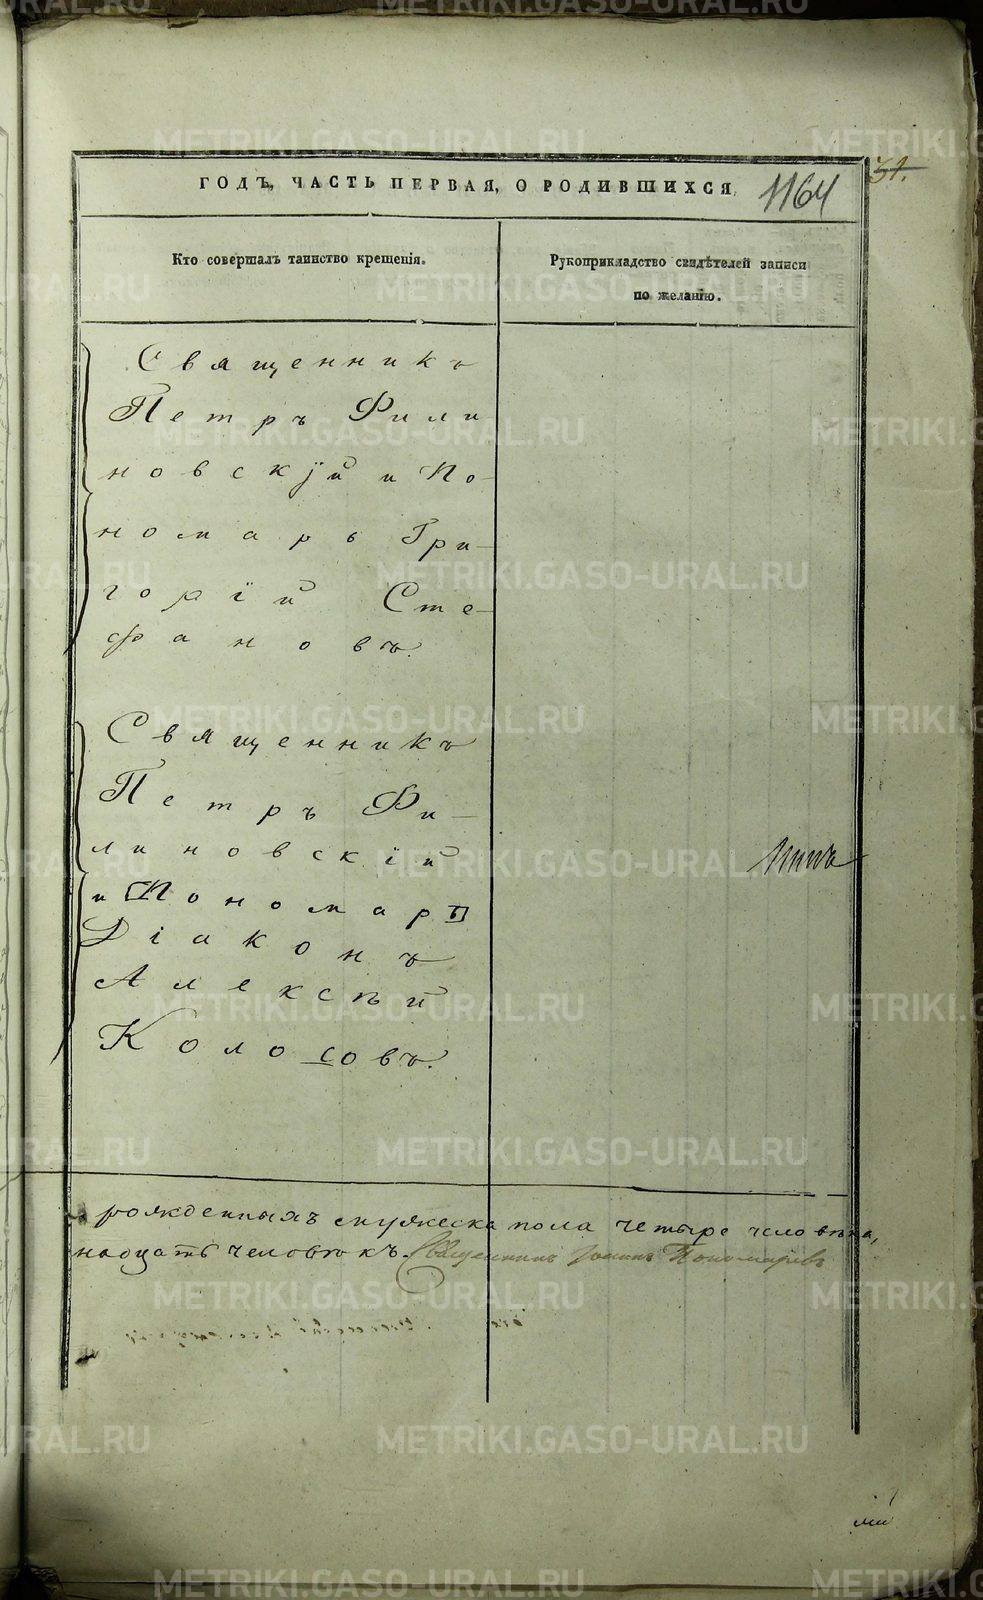 ГОДЪ, ЧАСТЬ ПЕРВАЯ, О РОДИВШИХСЯ.
1164
31.
Кто совершалъ таинство крещенія.
Рукоприкладство свидѣтелей записи
по желанію.
Священникъ
Петръ Фили
новскій и По-
номарь Гри-
горій Сте-
фановъ.
Священникъ
Петръ Фи-
линовскій
и Пономарь
Діаконъ
Алексѣй
Колосовъ.
рожденныхъ мужеска пола четыре человѣка,
надцать человѣкъ. Священникъ Іоаннъ Пономаревъ
METRIKI.GASO-URAL.RU